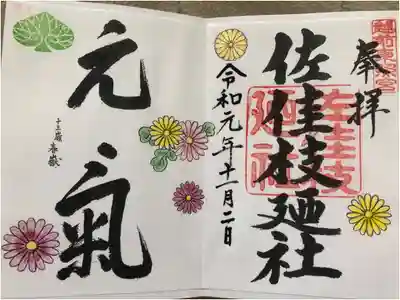 奉拝
佐佳枝廼社
佐佳枝
廼社
令和元年十一月二日
元氣
十三歳